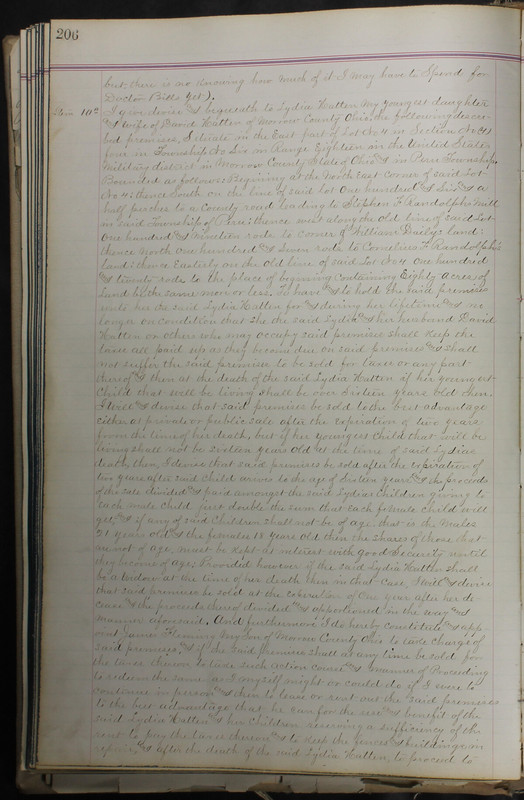 206
but there is no knowing how much of it I may have to Spend for
Doctor Bills yet).
Item 10th I give devise & bequeath to Lydia Hatten my youngest daughter
& wife of David Hatten of Morrow County Ohio, the following descri-
bed premises, Situate in the East part of Lot No 4 in Section No
four in Township No Six in Range Eighteen in the United States
Military district in Morrow County State of Ohio & in Peru Township
Bounded as follows Begining at the North East corner of said Lot
No 4; thence South on the line of said Lot One hundred & Six & a
half perches to a County road leading to Stephen F. Randolphs Mill
in said Township of Peru; thence west along the old line of said Lot
One hundred & Nineteen rods to corner of William Dailys land;
thence North One hundred & Seven rods to Cornelius F Randolph's
Land; thence Easterly on the old line of said Lot No 4 One hundred
& twenty rods to the place of beginning Containing Eighty Acres of
Land be the same more or less. To have & to hold the said premises
unto her the said Lydia Hatten for & during her lifetime & no
longer on condition that She the said Lydia & her husband David
Hatten or others who may occupy said premises shall Keep the
taxes all paid up as they become due on said premises & shall
not suffer the said premises to be sold for taxes or any part
thereof & then at the death of the said Lydia Hatten if her youngest
Child that will be living shall be over Sixteen years old then
I will & devise that said premises be sold to the best advantage
either at private or public sale after the expiration of two years
from the time of her death, but if her youngest child that will be
living shall not be sixteen years Old at the time of said Lydias
death, then, I devise that said premises be sold after the expiration of
two years after said child arrives to the age of Sixteen years & the proceeds
of the sale divided & paid amongst the said Lydias Children giving to
each male Child just double the sum that each female child will
get, & if any of said Children shall not be of age that is the Males
21 years old & the females 18 years old then the shares of those that
are not of age must be kept at interest with good Security until
they become of age; Provided however if the said Lydia Hatten shall
be a widow at the time of her death then in that Case, I will & devise
that said premises be sold at the expiration of One year after her de-
cease & the proceeds thereof divided & apportioned in the way &
manner aforesaid. And furthermore I do hereby constitute & app-
oint James Fleming My Son of Morrow County Ohio to take charge of
said premises & if the said premises shall at any time be sold for
the taxes thereon to take such action course & manner of Proceeding
to redeem the same as I myself might or could do if I were to
continue in person & then to lease or rent out the said premises
to the best advantage that he can for the use & benefit of the
said Lydia Hatten & her Children reserving a sufficiency of the
rent to pay the taxes thereon & to keep the fences & buildings in
repair, & after the death of the said Lydia Hatten, to proceed to